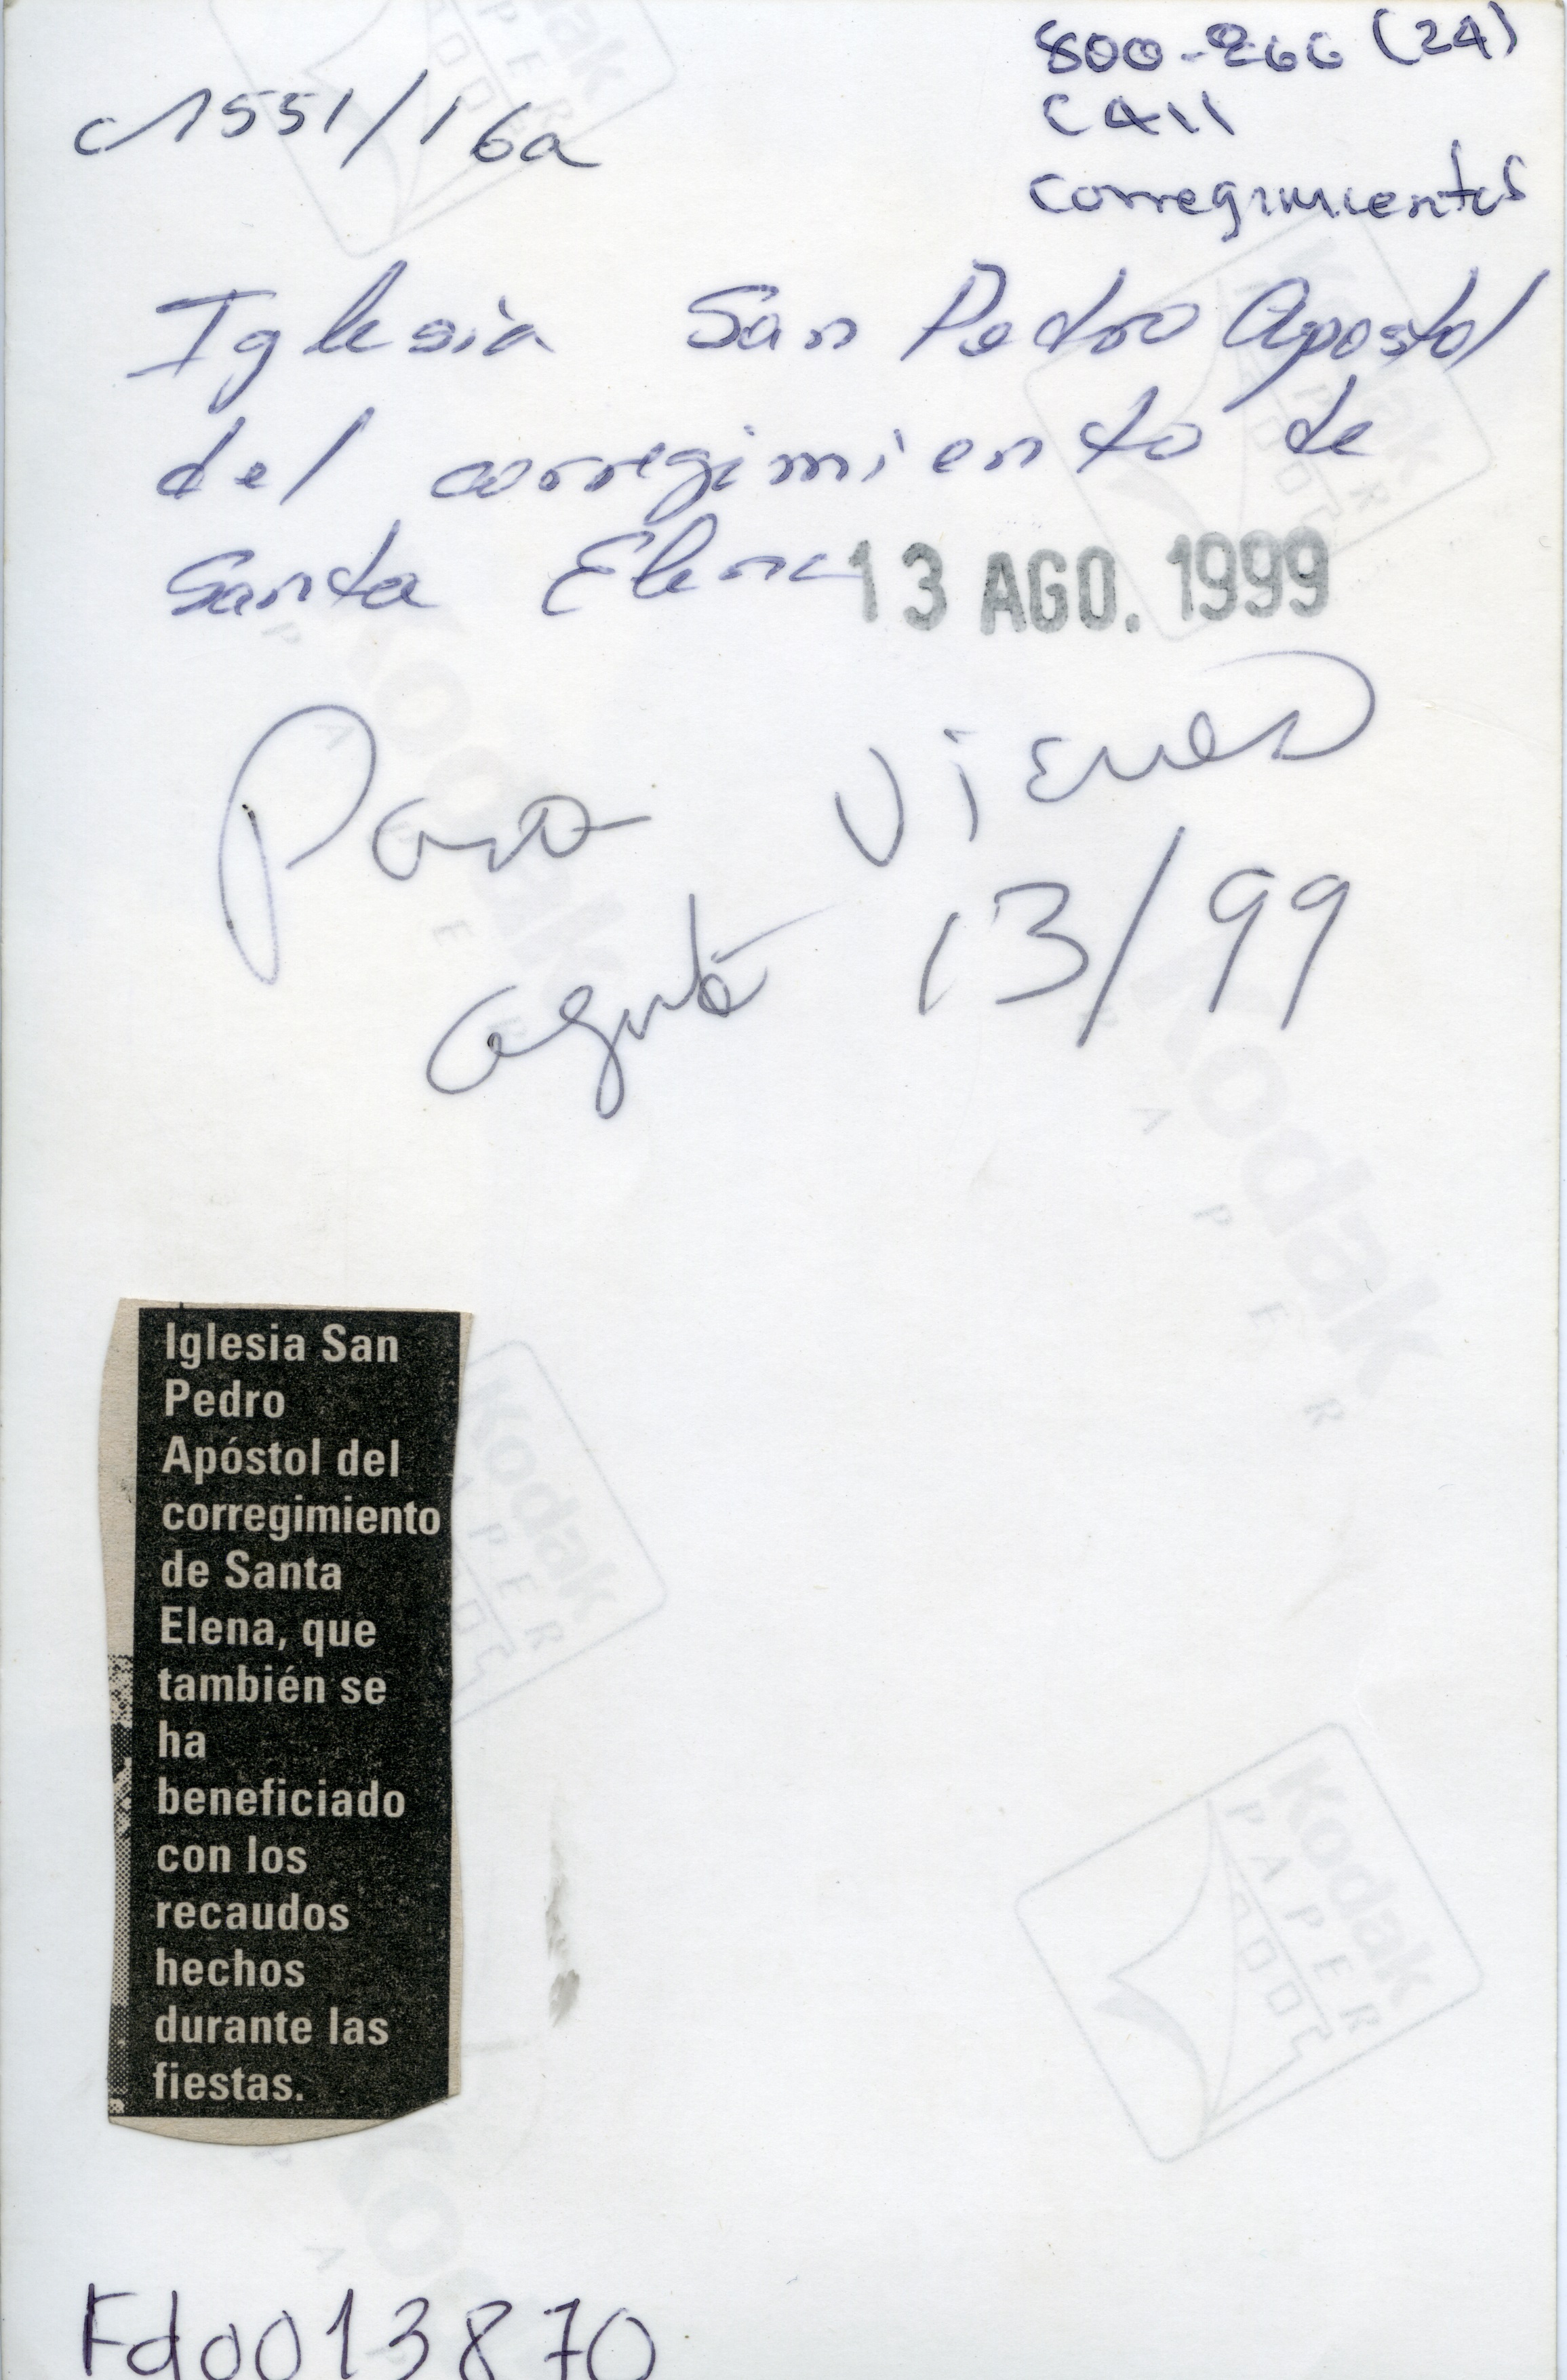 c1551/16a
800-266 (24)
CAli
corregimientos
Iglesia San Pedro Apostol
del corregimiento de
Santa Elena
13 AGO. 1999
Para viernes
agosto 13/99
Iglesia San
Pedro
Apóstol del
corregimiento
de Santa
Elena, que
también se
ha
beneficiado
con los
recaudos
hechos
durante las
fiestas.
Kodak
PAPER
Fdo013870